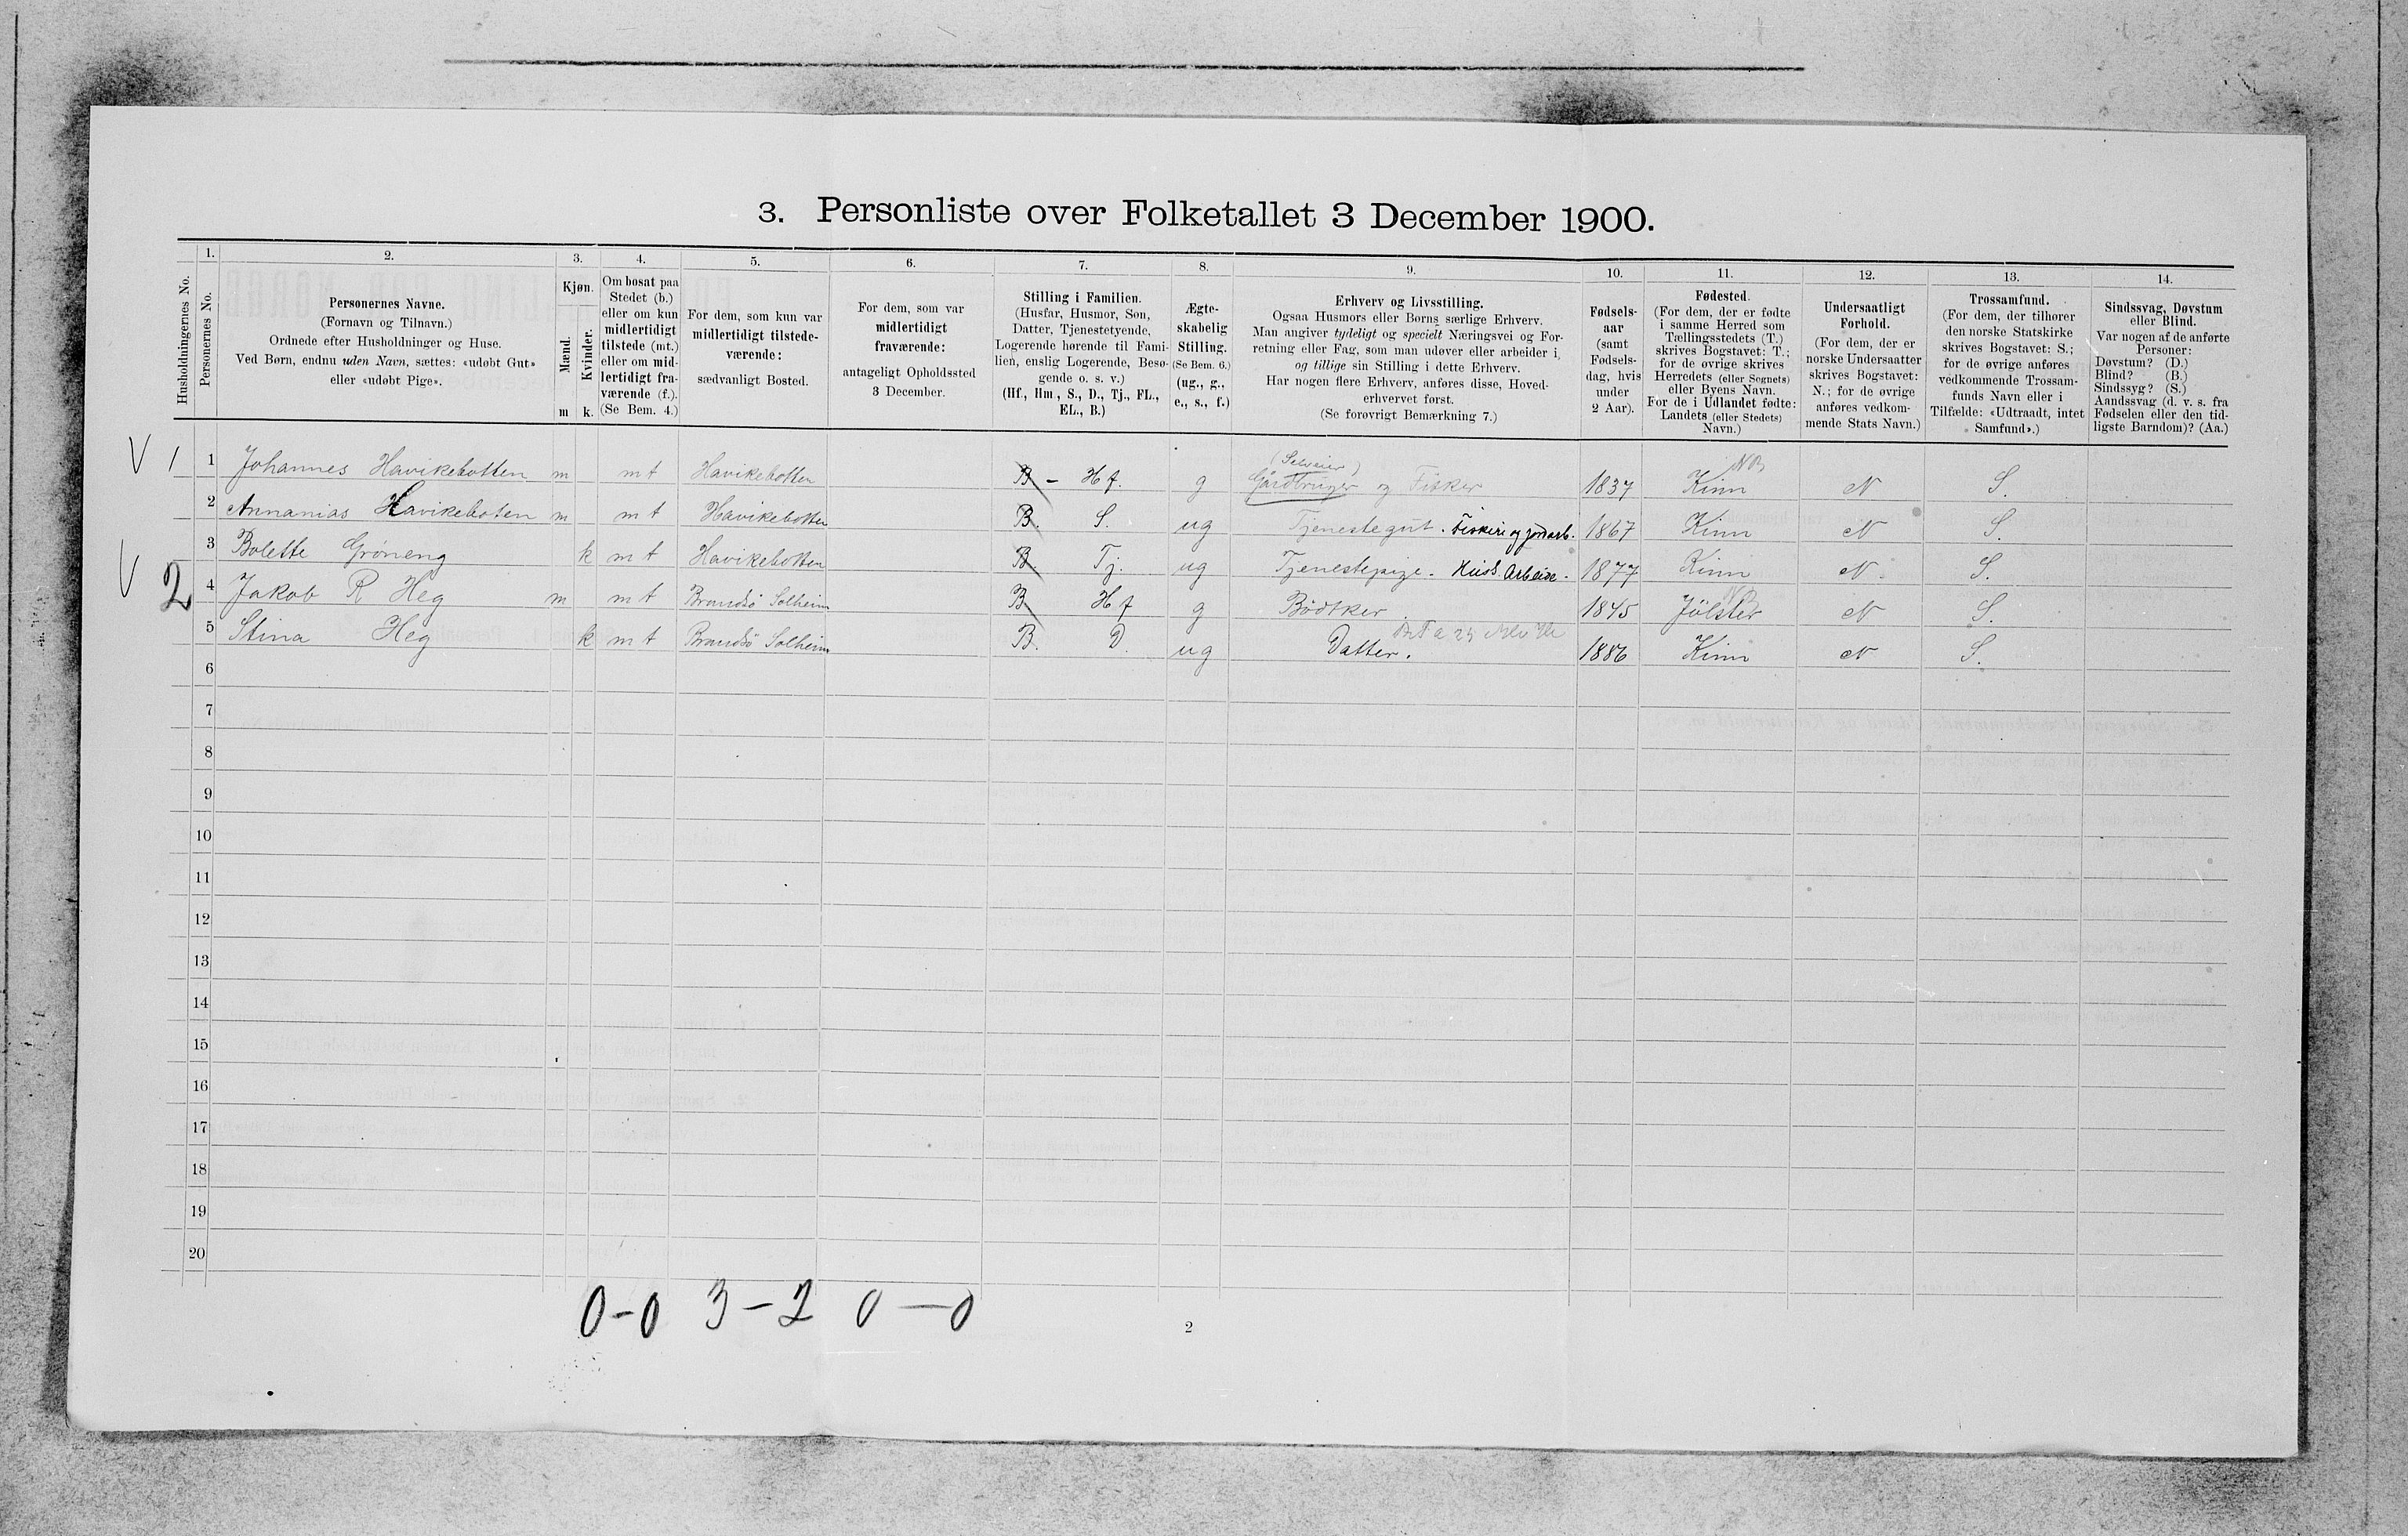 3. Personliste over Folketallet 3 December 1900.
Husholdningernes No.
1.
Personernes No.
2.
Personernes Navne.
(Fornavn og Tilnavn.)
Ordnede efter Husholdninger og Huse.
Ved Børn, endnu uden Navn, sættes: «udøbt Gut»
eller «udøbt Pige».
3.
Kjøn.
Mænd.
Kvinder.
m k.
4.
Om bosat paa
Stedet (b.)
eller om kun
midlertidigt
tilstede (mt.)
eller om mid-
lertidigt fra-
værende (f.).
(Se Bem. 4.)
5.
For dem, som kun var
midlertidigt tilstede-
værende:
sædvanligt Bosted.
6.
For dem, som var
midlertidigt
fraværende:
antageligt Opholdssted
3 December.
7.
Stilling i Familien.
(Husfar, Husmor, Søn,
Datter, Tjenestetyende,
Logerende hørende til Fami-
lien, enslig Logerende, Besø-
gende o. s. v.)
(Hf., Hm., S., D., Tj., FL.,
EL., B.)
8.
Ægte-
skabelig
Stilling.
(Se Bem. 6.)
(ug., g.,
e., s., f.)
9.
Erhverv og Livsstilling.
Ogsaa Husmors eller Børns særlige Erhverv.
Man angiver tydeligt og specielt Næringsvei og For-
retning eller Fag, som man udøver eller arbeider i,
og tillige sin Stilling i dette Erhverv.
Har nogen flere Erhverv, anføres disse, Hoved-
erhvervet først.
(Se forøvrigt Bemærkning 7.)
10.
Fødsels-
aar
(samt
Fødsels-
dag, hvis
under
2 Aar).
11.
Fødested.
(For dem, der er fødte
i samme Herred som
Tællingsstedets (T.)
skrives Bogstavet: T.;
for de øvrige skrives
Herredets (eller Sognets)
eller Byens Navn.
For de i Udlandet fødte:
Landets (eller Stedets)
Navn.)
12.
Undersaatligt
Forhold.
(For dem, der er
norske Undersaatter
skrives Bogstavet:
N.; for de øvrige
anføres vedkom-
mende Stats Navn.)
13.
Trossamfund.
(For dem, der tilhører
den norske Statskirke
skrives Bogstavet: S.;
for de øvrige anføres
vedkommende Trossam-
funds Navn eller i
Tilfælde: «Udtraadt, intet
Samfund».)
14.
Sindssvag, Døvstum
eller Blind.
Var nogen af de anførte
Personer:
Døvstum? (D.)
Blind? (B.)
Sindssyg? (S.)
Aandssvag (d. v. s. fra
Fødselen eller den tid-
ligste Barndom)? (Aa.)
(Selveier) NB
V 1 1 Johannes Havikebotten m mt Havikebotten B - Hf. g Gårdbruger og Fisker 1837 Kinn N S.
2 Annanias Havikeboten m mt Havikebotten B. S. ug Tjenestegut. Fiskeri og jordarb. 1867 Kinn N S.
3 Bolette Gröneng k mt Havikebotten B. Tj. ug Tjenestepige - Huusl. Arbeide - 1877 Kinn N. S.
NB
V 2 4 Jakob R Heg m mt Brandsö Solheim B Hf g Bödtker 1845 Jölster N S.
5 Stina Heg k mt Brandsö Solheim B. D. ug Datter. 1886 Kinn N S.
6
7
8
9
10
11
12
13
14
15
16
17
18
19
20
0-0 3-2 0-0
2